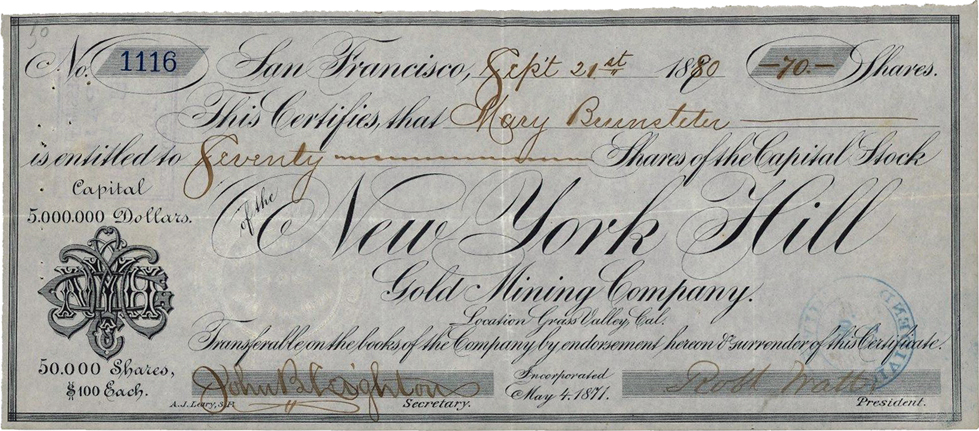 50
No. 1116 San Francisco, Sept 21st 1880 -70.- Shares.
This Certifies, that Mary Brunsteter
is entitled to Seventy Shares of the Capital Stock
Capital
5.000.000 Dollars.
of the New York Hill
Gold Mining Company.
Location Grass Valley, Cal.
Transferable on the books of the Company by endorsement hereon & surrender of this Certificate.
50.000 Shares,
$100 Each.
John B. Leighton
Secretary.
Incorporated
May 4. 1871.
Robt Watt
President.
A.J. Leary, S.F.